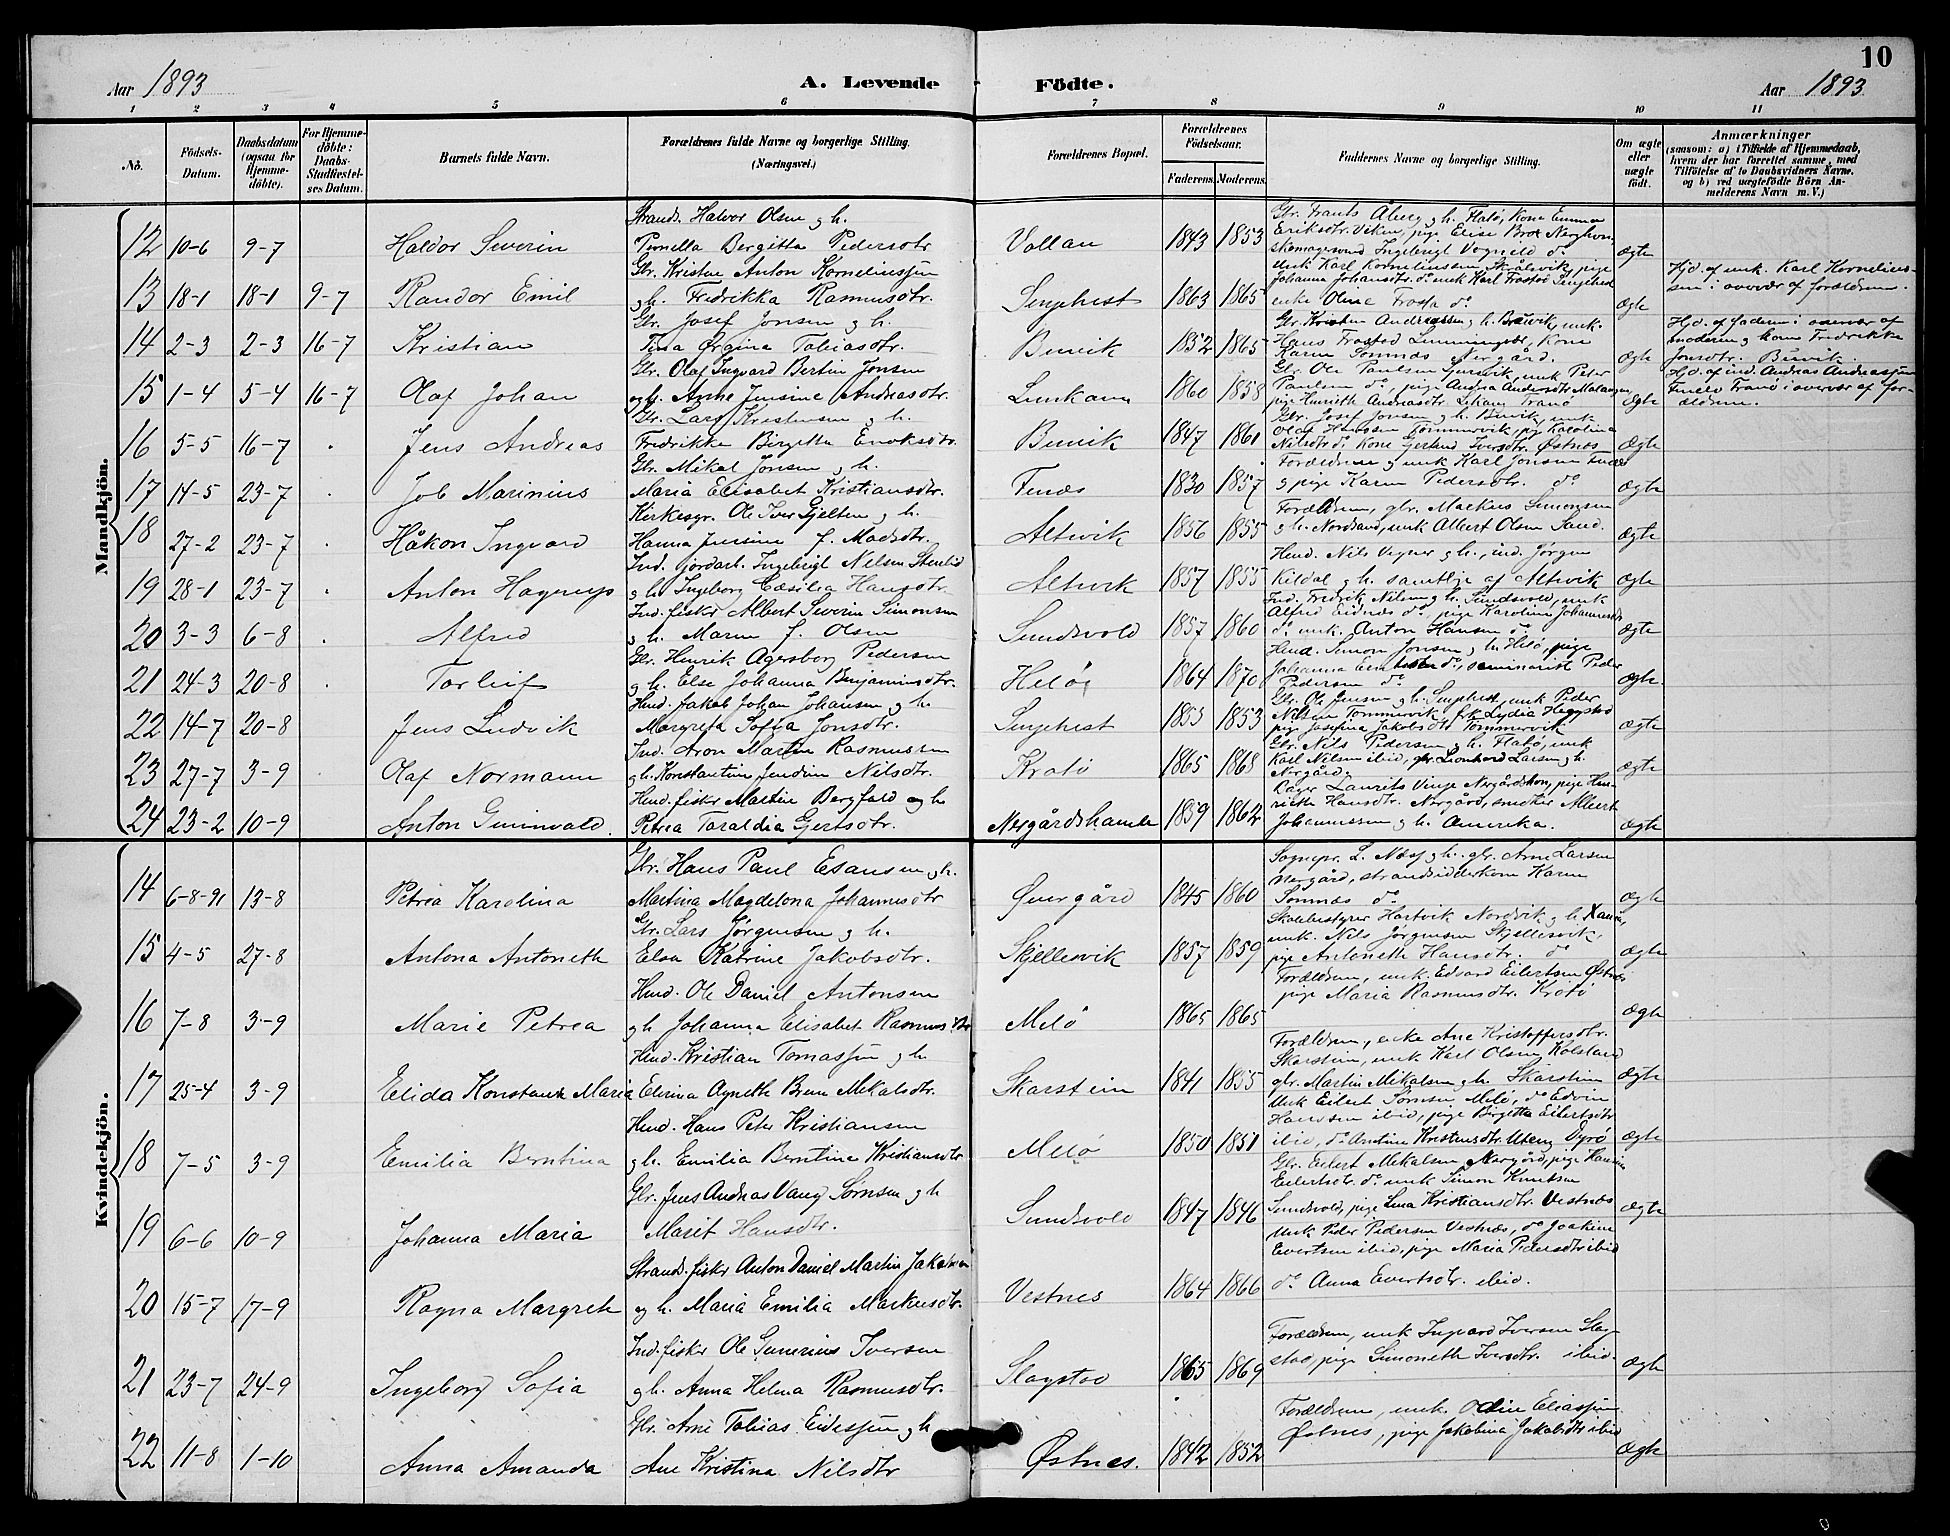 10
Aar 1893 A. Levende Födte. Aar 1893
1 2 3 4 5 6 7 8 9 10 11
No.
Födsels-Datum.
Daabsdatum (ogsaa for Hjemme-döbte).
For Hjemme-döbte: Daabs-Stadfæstel-ses Datum.
Barnets fulde Navn.
Forældrenes fulde Navne og borgerlige Stilling. (Næringsvei.)
Forældrenes Bopæl.
Forældrenes Födselsaar.
Faderens. Moderens.
Faddernes Navne og borgerlige Stilling.
Om ægte eller uægte födt.
Anmærkninger
(saasom: a) i Tilfælde af Hjemmedaab,
hvem der har forrettet samme, med
Tilföielse af to Daabsvidners Navne,
og b) ved uægtefödte Börn An-
melderens Navn m. V.)
Mandkjön.
12 10-6 9-7 Haldor Severin
Strands. Halvor Olsen og h.
Pernella Bergitta Pedersdtr
Vollan 1843 1853
Gbr. Frants Åberg og h. Flatö, Kone Emma
Eriksdtr. Viken, pige Elise
Ingebrigt Vognild do
ægte
13 18-1 18-1 9-7 Randor Emil
Gbr. Kristen Anton Kornelinssen
og h. Fredrikka Rasmusdtr.
1863 1865
unk Karl Kornelinssen Skålsvik, pige
Johanna Johansdtr. do unk Karl Frostad
enke Oline
ægte
Hjd. af unk. Karl Kornelius-
sen i overvær af forældrene.
14 2-3 2-3 16-7 Kristian
Gbr. Josef Jonsen og h.
Tina Ørgina Tobiasdtr.
Bunvik 1832 1865
Gbr. Kristen Andreassen og h. unk.
Hans Frostad Kone
Karen Sommas Nergård.
ægte
Hjd. af faderen i overvær af
moderen og kone Fredrikke
Jonsdtr. Bunvik.
15 1-4 5-4 16-7 Olaf Johan
Gbr. Olaf Ingvard Bertin Jonsen
og h. Anne Jensine Andreasdtr.
Lunkan 1860 1858
Gbr. Ole Paulsen unk Peter
Paulsen do, pige Andrea Andersdtr Malangen,
pige Henriette Andreasdtr. Tranö
ægte
Hjd. af ind. Andreas Andreassen
Tranö i overvær af for-
ældrene.
16 5-5 16-7 Jens Andreas
Gbr. Lars Kristensen og h.
Fredrikke Birgitta Enoksdtr.
Bunvik 1847 1861
Gbr. Josef Jonsen og h. Bunvik unk
Olaf Hanssen Tömmervik, pig Karolina
Nilsdtr do Kone Gertrud Iversdtr. Østnes
ægte
17 14-5 23-7 Job Marinius
Gbr. Mikal Jonsen og h.
Maria Elisabet Kristiansdtr.
Finæs 1830 1857
Forældrene og unk Karl Jonsen Finæs
og pige Karen Pedersdtr. do
ægte
18 27-2 23-7 Håkon Ingvard
Kirkesgr. Ole Iver Gjelten og h.
Hanna Jensine f. Madsdtr.
Altevik 1856 1855
Forældrene, gbr. Markus Simonsen
og h. Nordsand, unk Albert Olsen Sand.
ægte
19 28-1 23-7 Anton Hagerup
Ind. jordarb. Ingebrigt Nilsen Stenlid
og h Ingeborg Cæsilia Hansdtr.
Altevik 1857 1855
Husd. Nils Vegner og h., ind. Jörgen
Kildal og h. samtlige af Altevik
ægte
20 3-3 6-8 Alfred
Ind. fisker Albert Severin Simonsen
og h. Maren f. Olsen
Sundsvold 1857 1860
Ind. Fredrik Nilsen og h. Sundsvold, unk
Alfred Eidnæs do, pige Karoline Johannesdtr
do unk. Anton Hansen do
ægte
21 24-3 20-8 Torleif
Gbr. Henrik Agersborg Pedersen
og h. Else Johanna Benjaminsdtr.
Helö 1864 1870
Husd. Simon Jonsen og h. Helö, pige
Johanna do, seminarist Peder
Pedersen do
ægte
22 14-7 20-8 Jens Ludvik
Husd. Jakob Johan Johansen og h
Margreta Sofia Jonsdtr.
1853 1853
Gbr. Ole Jensen og h. unk Peder
Nilsen Tömmervik, frk Lydia Heggstad
pige Josefina Jakobsdtr Tömmervik
ægte
23 27-7 3-9 Olaf Normann
Ind. Aron Martin Rasmussen
og h. Konstantine Jendine Nilsdtr.
Krotö 1865 1868
Gbr. Nils Pedersen og h. Flatö, unk
Karl Nilsen ibid, gbr. Leonhard Larsen og h.
Nergård.
ægte
24 23-2 10-9 Anton Gunnvald.
Husd. fisker Martin Bergfald og h
Petrea Taraldia Gjertsdtr.
Nergårdshamn 1859 1862
Bager Laurits Vinje Nergårdshvn, pige Hen-
riette Hansdtr. Nergård, snekker Albert
Johannessen og h. Amerika.
ægte
Kvindekjön.
14 6-8-91 13-8 Petrea Karolina
Gbr. Hans Paul Esansen og h.
Martina Magdelona Johannesdtr
Övergård 1845 1860
Sognepr. L. Næss og h. gbr. Arne Larsen
Nergård, strandsidderkone Karen
Sommæs do
ægte
15 4-5 27-8 Antona Antoneth
Gbr. Lars Jörgensen og h.
Elsa Katrine Jakobsdtr.
Skjellesvik 1857 1859
Skolebestyrer Hartvik Nordvik og h.
unk. Nils Jörgensen Skjellesvik,
pige Antoneth Hansdtr. do
ægte
16 7-8 3-9 Marie Petrea
Husd. Ole Daniel Antonsen
og h Johanna Elisabet Rasmusdtr
Melö 1865 1865
Forældrene, unk. Edvard Eilertsen Østnes
pige Maria Rasmusdtr. Krotö
ægte
17 25-4 3-9 Elida Konstanse Maria
Husd. Kristian Tomassen og h
Elerina Agneth Brun Mikalsdtr.
Skarstein 1841 1855
Forældrene, enke Ane Kristoffersdtr.
Skarstein, unk Karl Olsen Kolsland
gbr. Martin Mikalsen og h. Skarstein
ægte
18 7-5 3-9 Emilia Berntina
Husd. Hans Peter Kristiansen
og h. Emilia Berntine Kristiansdtr
Melö 1850 1851
Unk Eilert Sörensen Melö, do Edvin
Hansen ibid, pige Birgitta Eilertsdtr
ibid, do Antine Kristensdtr Uteng Dyrö
ægte
19 6-6 10-9 Johanna Maria
Gbr. Jens Andreas Vang Sörnsen og h
Marit Hansdtr.
Sundsvold 1847 1846
Gbr. Eilert Mikalsen Nergård, pige
Eilertsdtr. do unk Simon Knutsen
Sundsvold, pige Lina Kristiansdtr. Vestnes
ægte
20 15-7 17-9 Ragna Margreth
Strands. fisker Anton Daniel Martin Jakobsen
og h. Maria Emilia Markusdtr.
Vestnes 1864 1866
Unk Peder Pedersen Vestnæs, do Joakim
Evertsen ibid, pige Maria Pedersdtr ibid
do Anna Evertsdtr. ibid.
21 23-7 24-9 Ingeborg Sofia
Ind. fisker Ole Gunerius Iversen
og h. Anna Helena Rasmusdtr.
Slagstad 1865 1869
Forældrene, unk Ingvard Iversen Slag-
stad, pige Simoneth Iversdtr. ibid.
ægte
22 11-8 1-10 Anna Amanda
Gbr. Arne Tobias Eidessen og h
Ane Kristina Nilsdtr
Østnes. 1842 1852
Forældrene, unk. Odin Eliassen
Østnes, pige Jakobina Jakobsdtr ibid
ægte